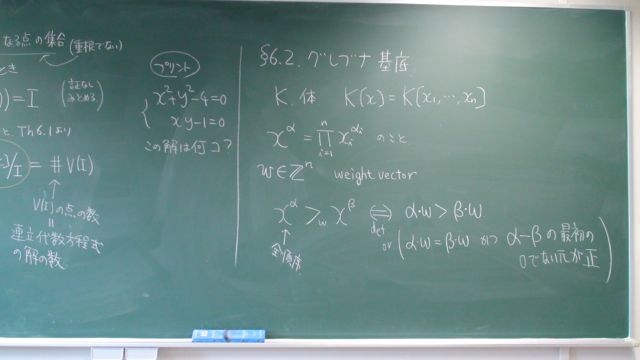 なる点の集合 (重根でない)
とき
))=I (証なし みとめる)
と、Th6.1より
/I = #V(I)
V(I)の点の数
=
連立代数方程式
の解の数
プリント
{ x²+y²-4=0
xy-1=0
この解は何コ?
§6.2. グレブナ基底
K.体 K[x]=K[x₁,…,xₙ]
x^α = ∏_{i=1}^{n} x_i^{α_i} のこと
w∈Zⁿ weight vector
x^α >_w x^β ⇔ α·w > β·w
def
or (α·w=β·w かつ α-β の最初の
0でない元が正)